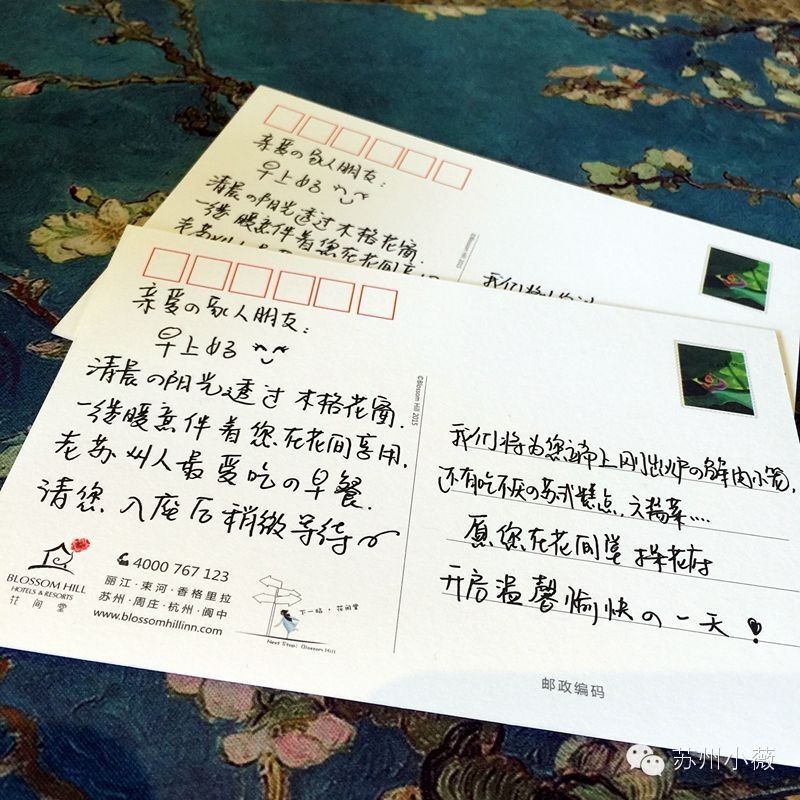 亲爱の家人朋友：
早上好
清晨の阳光透过木格花窗.
一缕暖意伴着您在花间
我们将为您
亲爱の家人朋友：
早上好
清晨の阳光透过木格花窗.
一缕暖意伴着您在花间享用.
老苏州人最爱吃の早餐.
请您入座后稍微等待
©Blossom Hill 2015
我们将为您端上刚出炉の蟹肉小笼,
还有吃不厌の苏式糕点、六福菜……
愿您在花间堂 探花府
开启温馨愉快の一天!
BLOSSOM HILL
HOTELS & RESORTS
花间堂
4000 767 123
丽江·束河·香格里拉
苏州·周庄·杭州·阆中
www.blossomhillinn.com
下一站·花间堂
Next Stop: Blossom Hill
邮政编码
苏州小薇